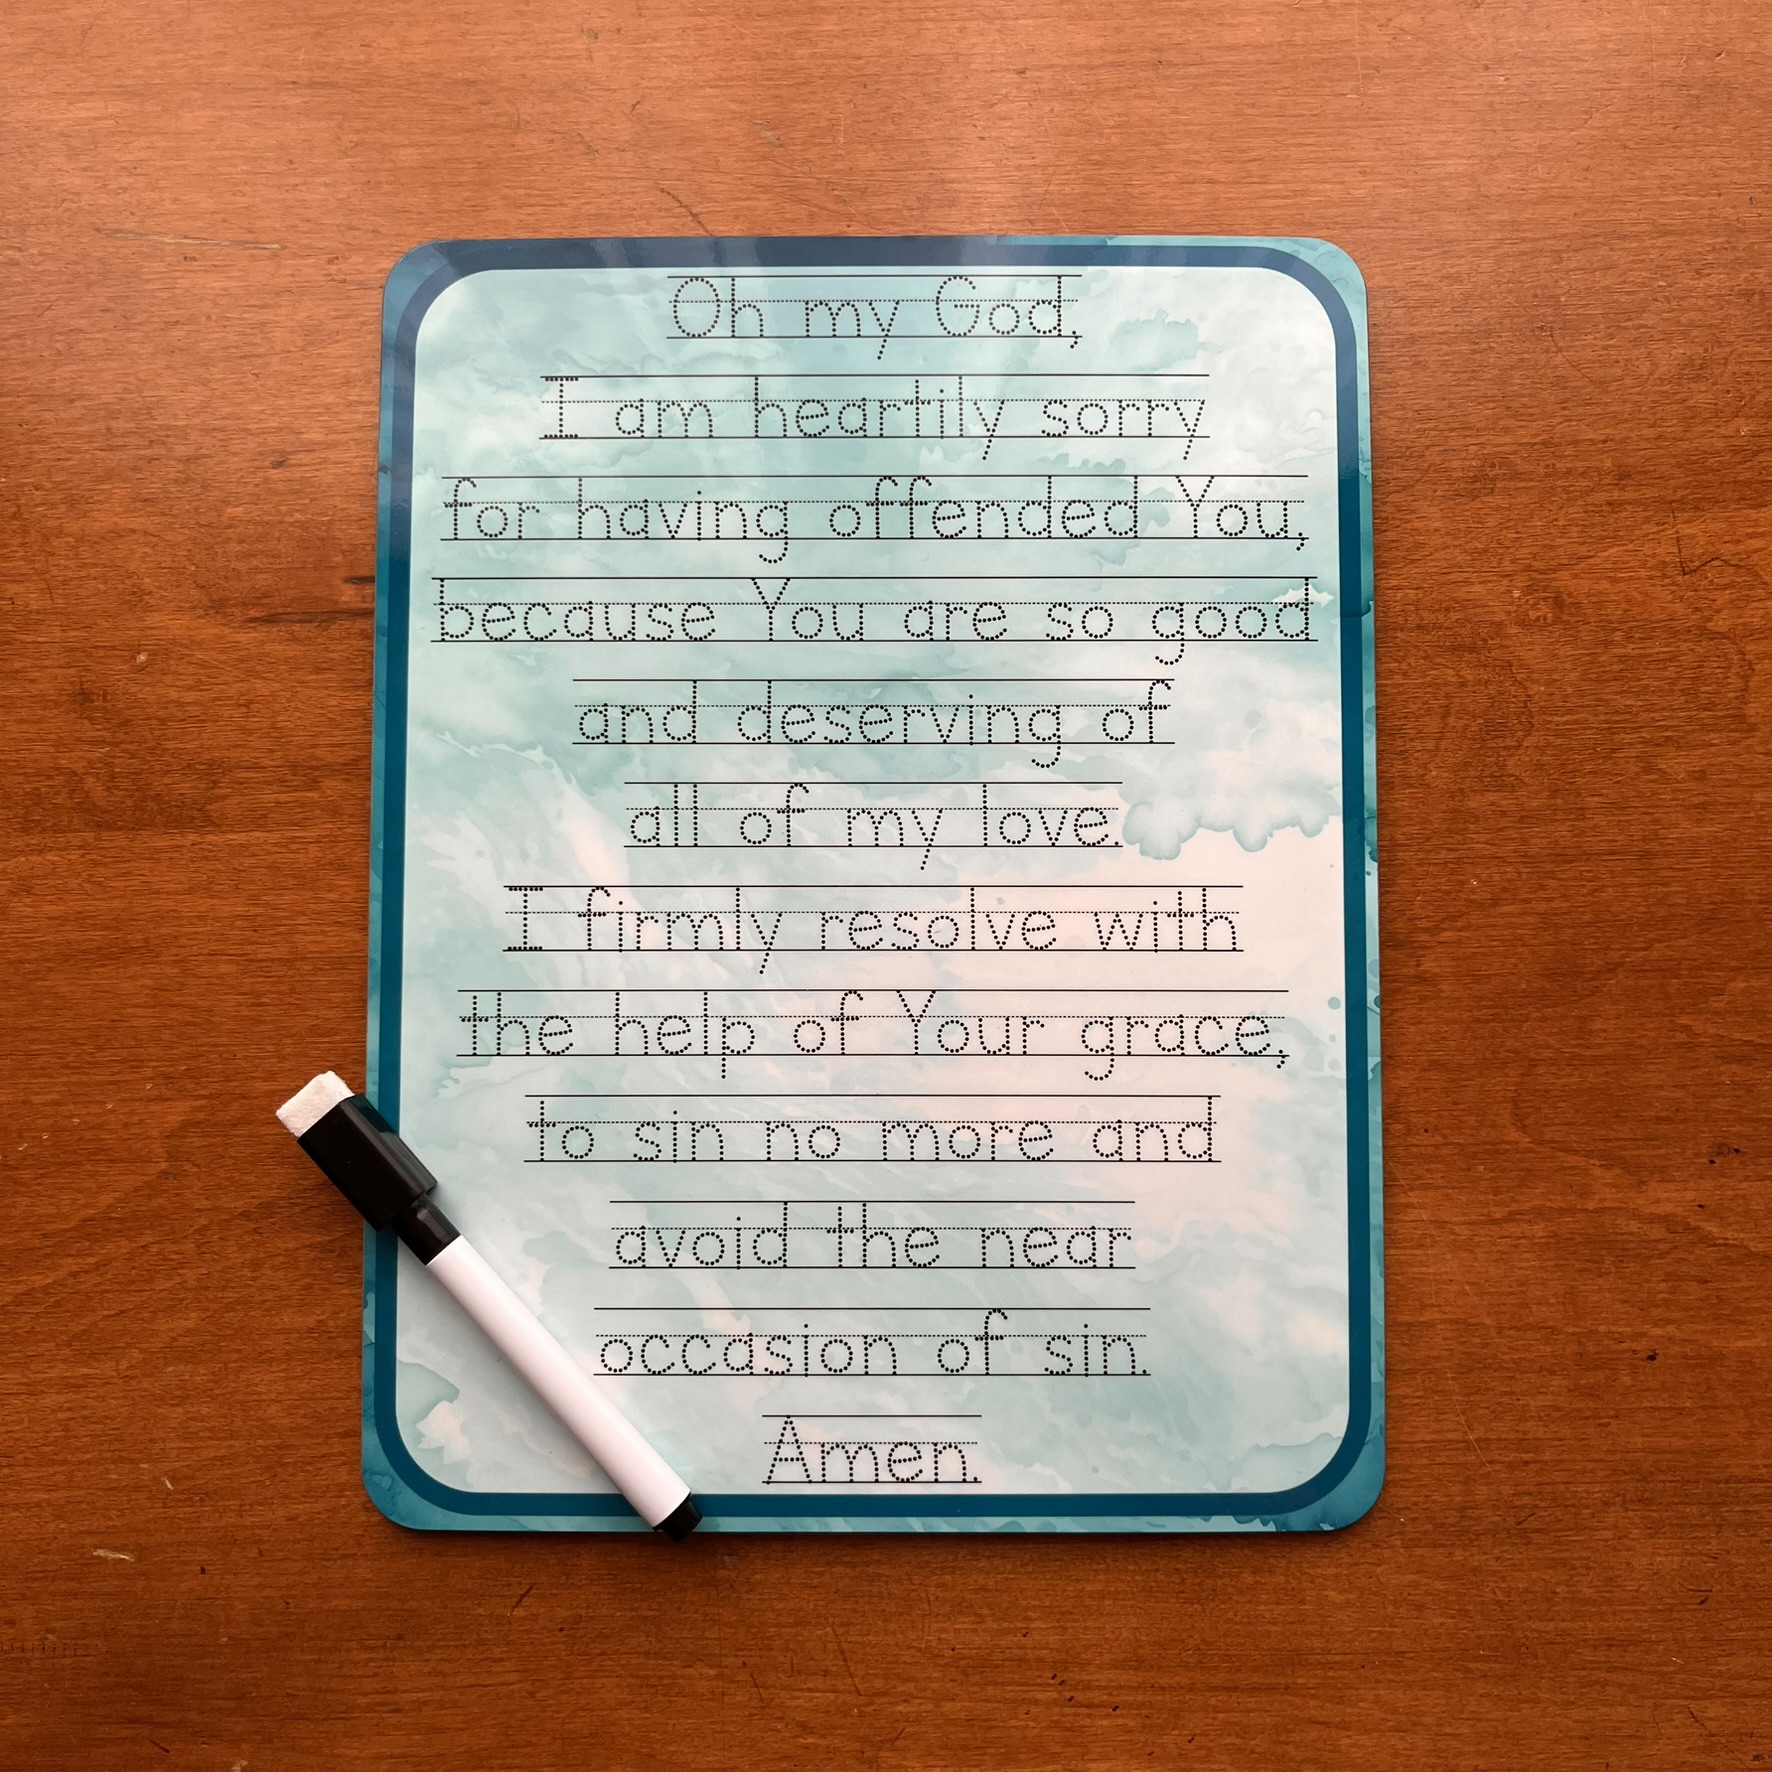 Oh my God,
I am heartily sorry
for having offended You,
because You are so good
and deserving of
all of my love.
I firmly resolve with
the help of Your grace,
to sin no more and
avoid the near
occasion of sin.
Amen.